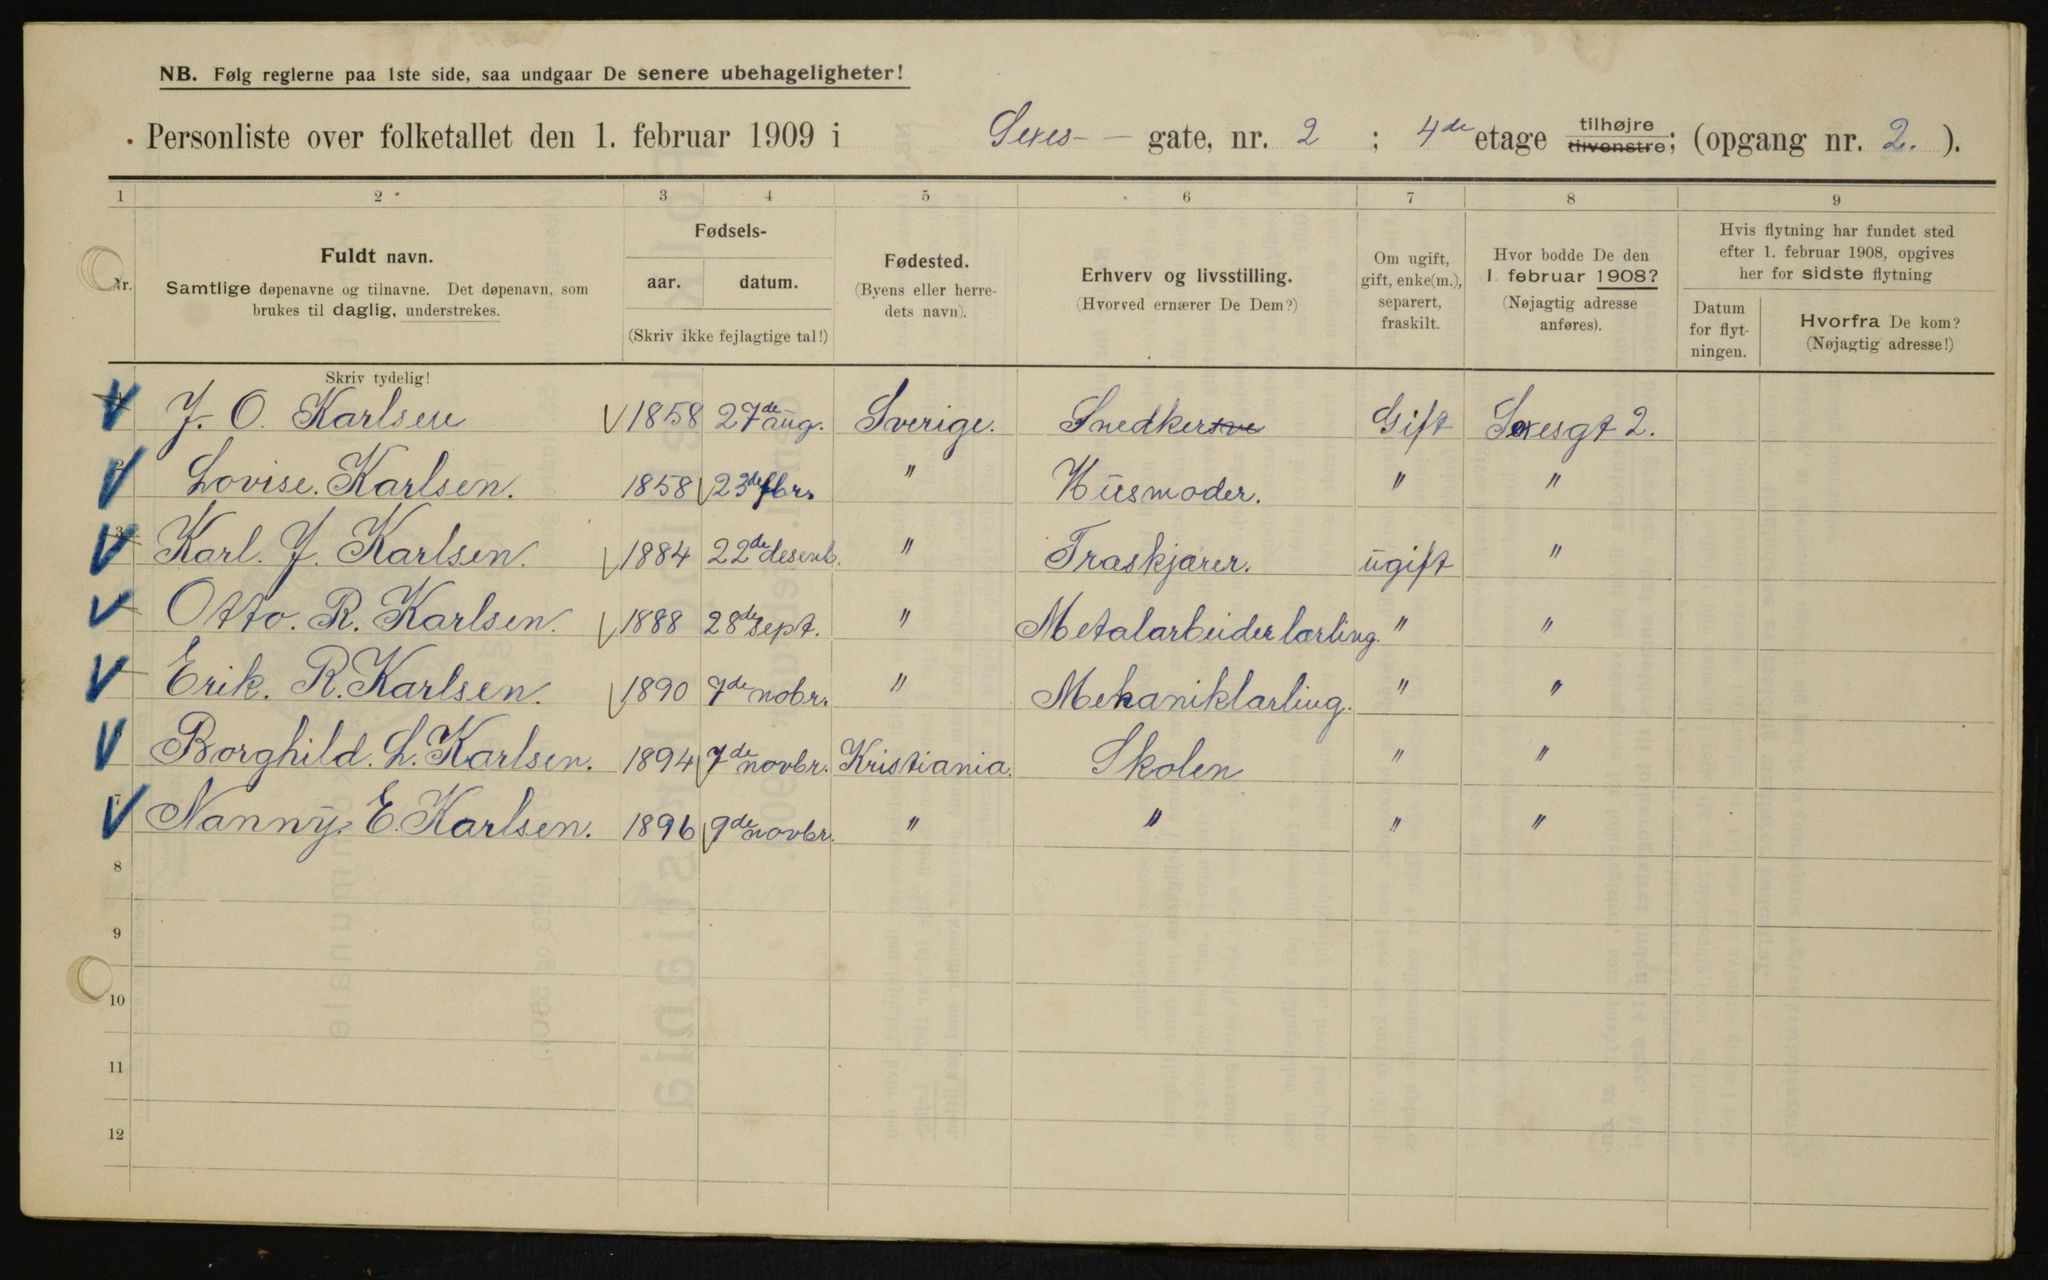 NB. Følg reglerne paa 1ste side, saa undgaar De senere ubehageligheter!
Personliste over folketallet den 1. februar 1909 i Sexes- gate, nr. 2 ; 4de etage tilhøjre tilvenstre; (opgang nr. 2. ).
1 2 3 4 5 6 7 8 9
Nr.
Fuldt navn.
Samtlige døpenavne og tilnavne. Det døpenavn, som
brukes til daglig, understrekes.
Skriv tydelig!
Fødsels-
aar. datum.
(Skriv ikke fejlagtige tal!)
Fødested.
(Byens eller herre-
dets navn).
Erhverv og livsstilling.
(Hvorved ernærer De Dem?)
Om ugift,
gift, enke(m.),
separert,
fraskilt.
Hvor bodde De den
1. februar 1908?
(Nøjagtig adresse
anføres).
Hvis flytning har fundet sted
efter 1. februar 1908, opgives
her for sidste flytning
Datum
for flyt-
ningen.
Hvorfra De kom?
(Nøjagtig adresse!)
J. O. Karlsen 1858 27de aug. Sverige. Snedker Gift Sexesgt 2.
Lovise. Karlsen. 1858 23de fbr. " Husmoder. " "
3 Karl. J. Karlsen. 1884 22de desemb. " Træskjærer. ugift "
Otto. R. Karlsen. 1888 28de sept. " Metalarbeiderlærling. " "
Erik. R. Karlsen. 1890 7de nobr. " Mekaniklærling. " "
Borghild. L. Karlsen. 1894 7de novbr. Kristiania. Skolen " "
Nanny. E. Karlsen. 1896 9de novbr. " " " "
8
9
10
11
12